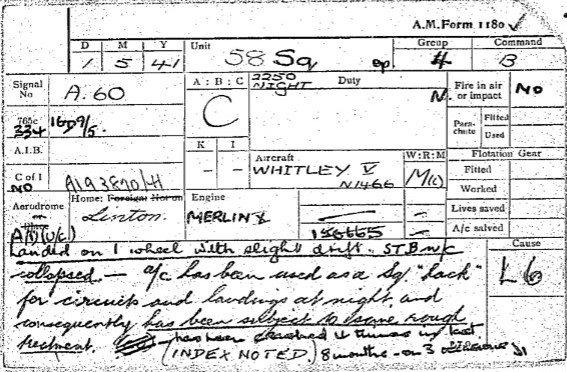 A.M. Form 1180
D M Y Unit Group Command
1 5 41 58 Sq op. 4 B
Signal No A.60
A : B : C 2250 NIGHT Duty
C N.
Fire in air or impact No
765c 334 16D9/5.
Para-chute Fitted Used
A.I.B.
K I
- -
Aircraft WHITLEY V N1466
W:R:M M(c)
Flotation Gear
Fitted
Worked
C of I NO A193870/H
Aerodrome Home: Foreign: Not on
Linton.
Engine MERLIN X
156665
Lives saved
A/c salved
Cause L 6
Landed on 1 wheel with slight drift. STB u/c
collapsed. — a/c has been used as a Sq "hack"
for circuits and landings at night and
consequently has been subject to some rough
treatment. has been crashed 4 times in last
(INDEX NOTED.) 8 months - on 3